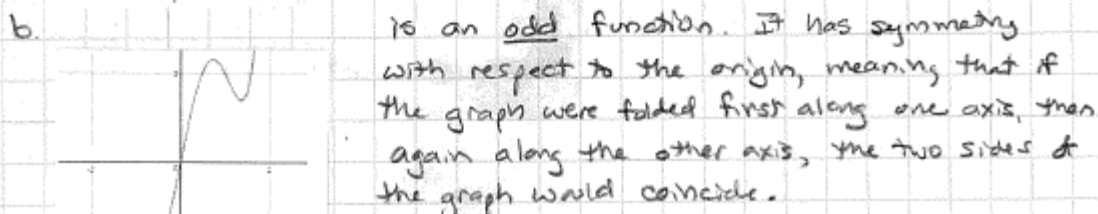 b.
is an odd function. It has symmetry
with respect to the origin, meaning that if
the graph were folded first along one axis, then
again along the other axis, the two sides of
the graph would coincide.